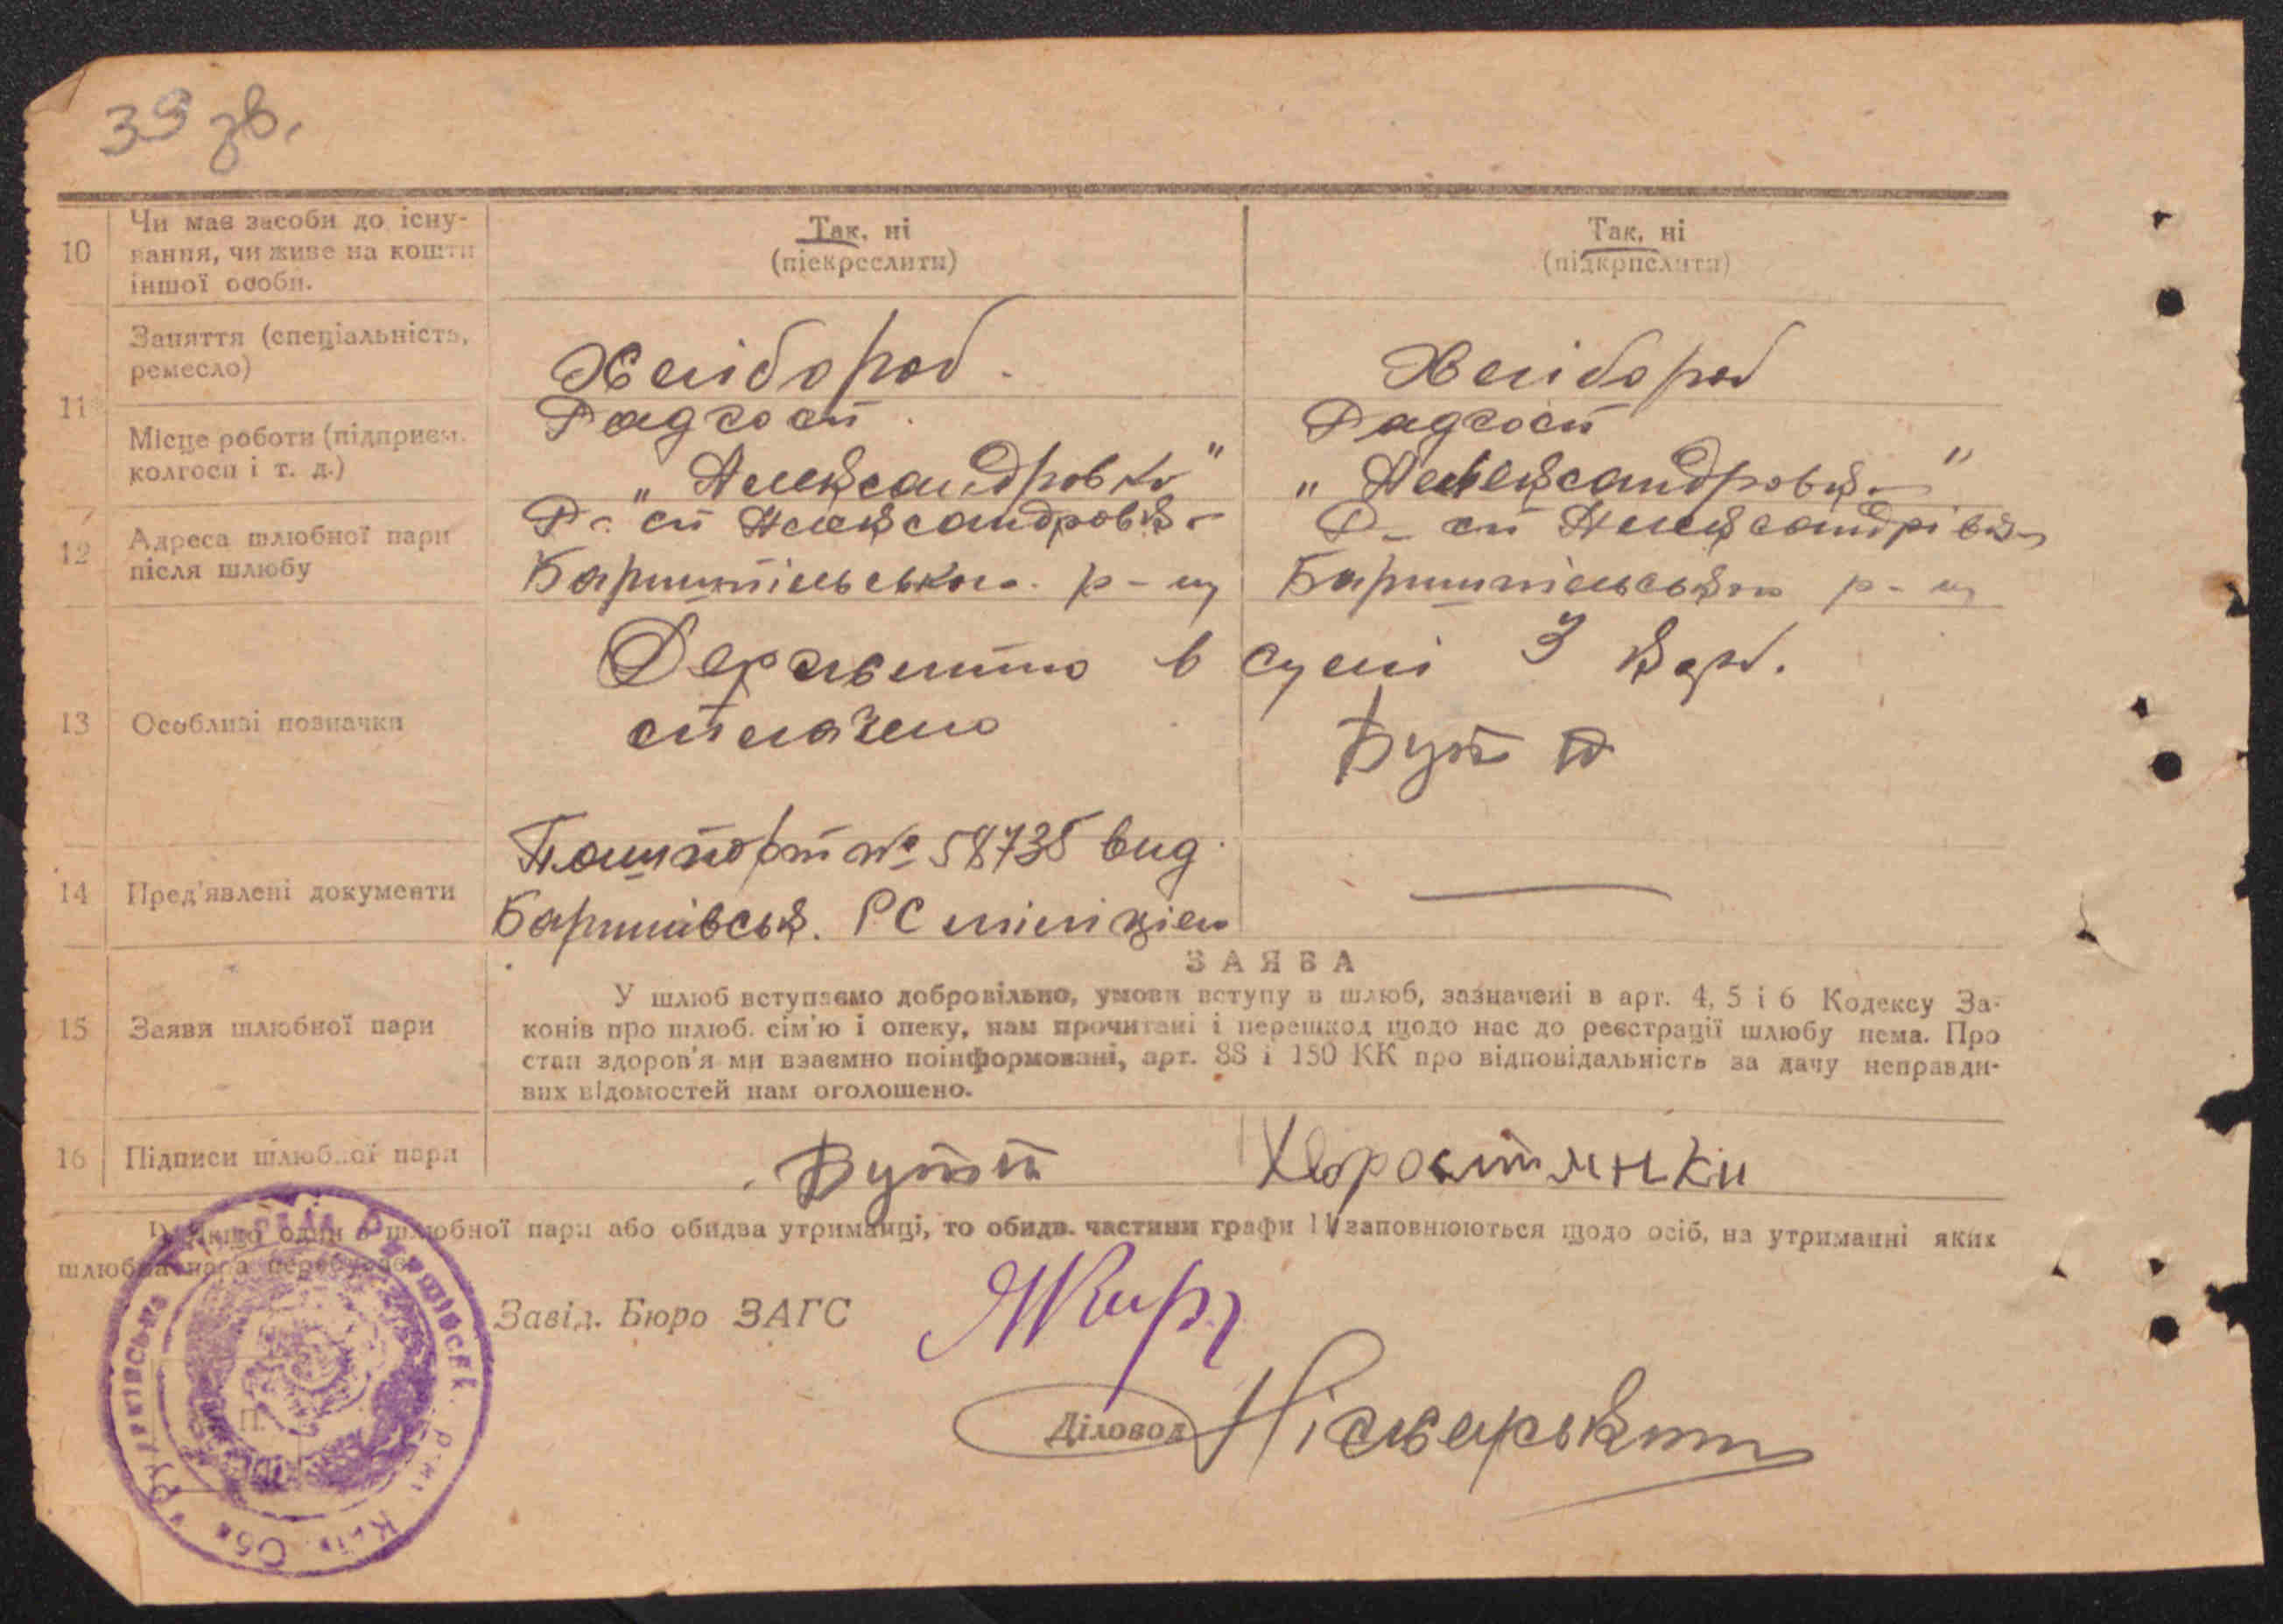 39 зв.
10
Чи має засоби до існу-
вання, чи живе на кошти
іншої особи.
Так, ні
(піекреслити)
Так, ні
(підкрпслити)
11
Заняття (спеціальність,
ремесло)
Хлібороб.
Хлібороб
Місце роботи (підприєм.
колгосп і т. д.)
Радгосп
"Александровка"
Радгосп
"Александровка"
12
Адреса шлюбної пари
після шлюбу
Р-сп Александровка
Баришпільського р-ну
Р-сп Александрівка
Баришпільського р-ну
13
Особливі позначки
Держмито в сумі 3 крб.
сплачено
Бут
14
Пред'явлені документи
Пашпорт № 58735 вид.
Баришівськ. РС міліцією
15
Заява шлюбної пари
ЗАЯВА
У шлюб вступаємо добровільно, умови вступу в шлюб, зазначені в арт. 4, 5 і 6 Кодексу За-
конів про шлюб. сім'ю і опеку, нам прочитані і перешкод щодо нас до реєстрації шлюбу нема. Про
стан здоров'я ми взаємно поінформовані, арт. 88 і 150 КК про відповідальність за дачу неправди-
вих відомостей нам оголошено.
16
Підписи шлюбної пари
1) Якщо один з шлюбної пари або обидва утриманці, то обидв. частини графи 11 заповнюються щодо осіб, на утриманні яких
шлюбна пара перебуває
Завід. Бюро ЗАГС
Діловод
Рудниківська
Баришівськ. р-ну Київ. Обл